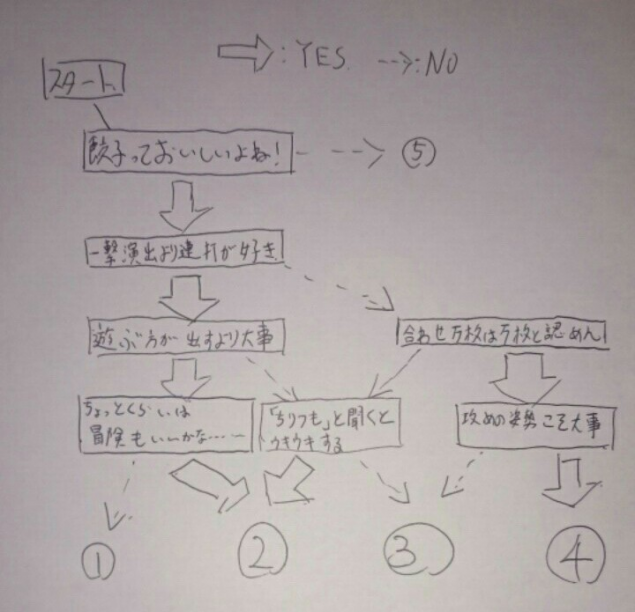 :YES
:NO
スタート
餃子っておいしいよね!
⑤
一撃演出より連打が好き
遊ぶ方が出すより大事
合わせ万枚は万枚と認めん
ちょっとくらいは
冒険もいーかな……
「ちりつも」と聞くと
ウキウキする
攻めの姿勢こそ大事
①
②
③
④